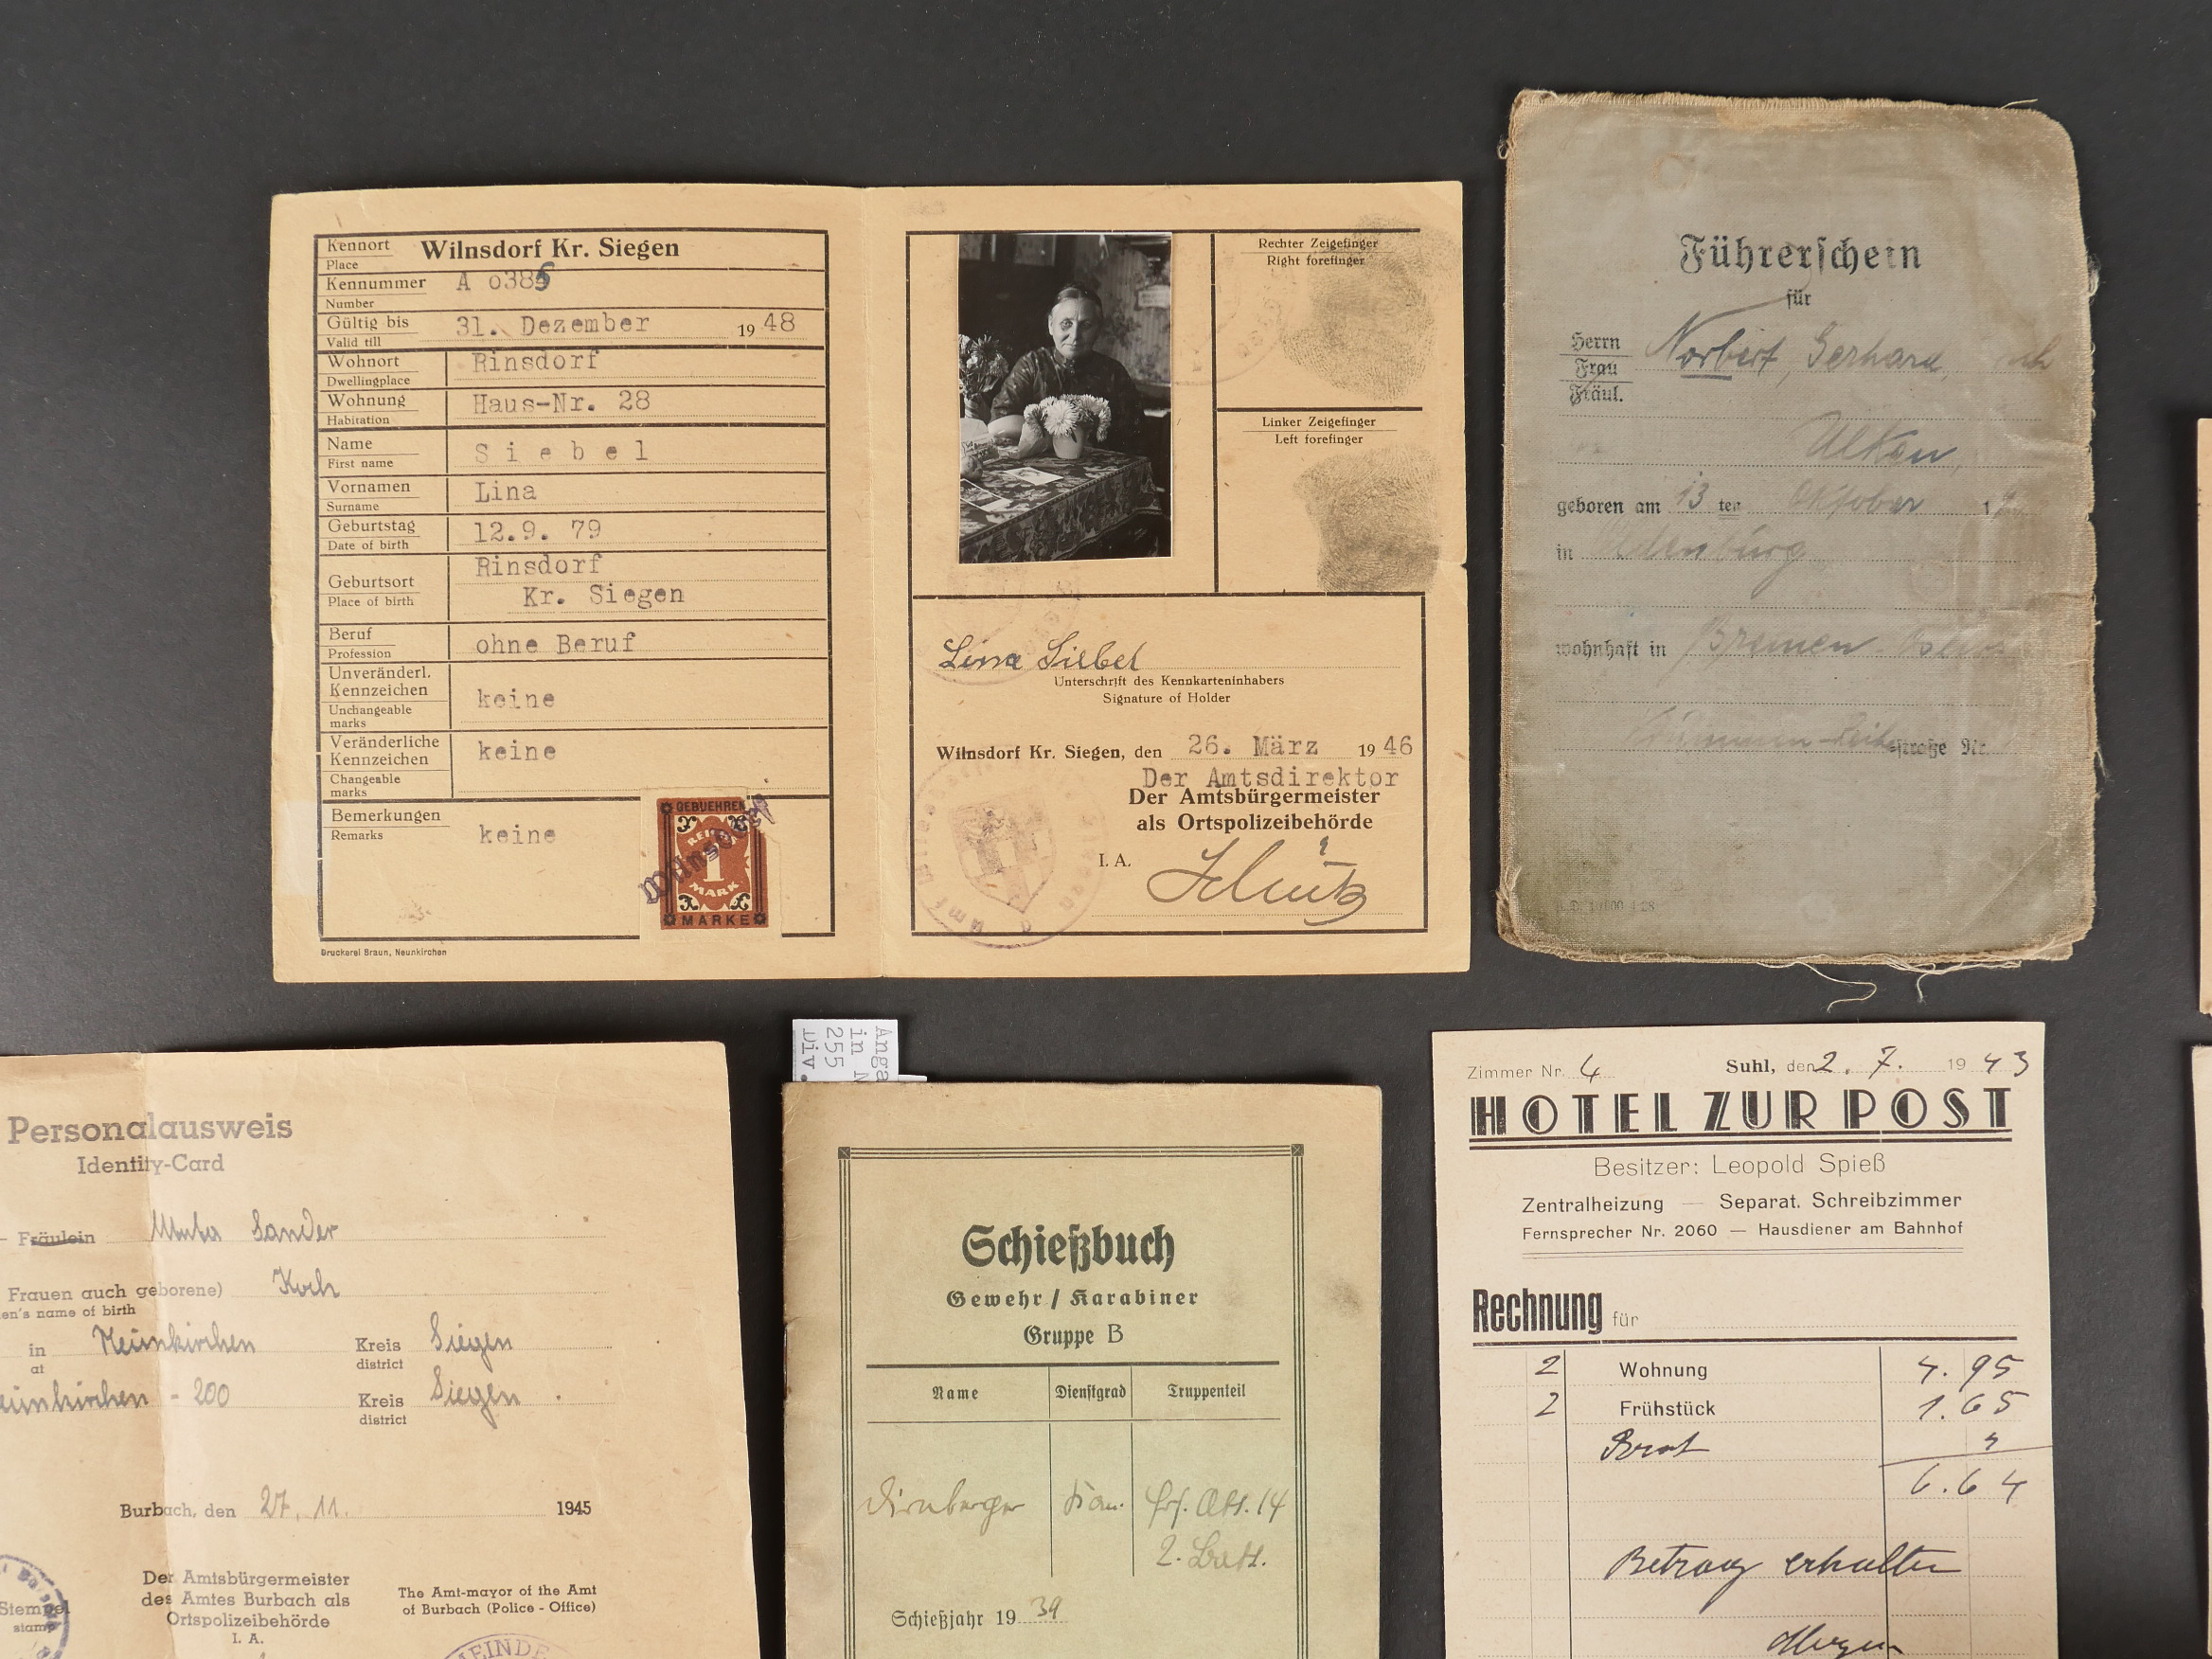 Kennort
Place
Wilnsdorf Kr. Siegen
Kennummer
Number
A 0385
Gültig bis
Valid till
31. Dezember 1948
Wohnort
Dwellingplace
Rinsdorf
Wohnung
Habitation
Haus-Nr. 28
Name
First name
Siebel
Vornamen
Surname
Lina
Geburtstag
Date of birth
12.9. 79
Geburtsort
Place of birth
Rinsdorf
Kr. Siegen
Beruf
Profession
ohne Beruf
Unveränderl.
Kennzeichen
Unchangeable
marks
keine
Veränderliche
Kennzeichen
Changeable
marks
keine
Bemerkungen
Remarks
keine
GEBUEHREN
1
MARK
MARKE
Wilnsdorf
Druckerei Braun, Neunkirchen
Rechter Zeigefinger
Right forefinger
Linker Zeigefinger
Left forefinger
Lina Siebel
Unterschrift des Kennkarteninhabers
Signature of Holder
Wilnsdorf Kr. Siegen, den 26. März 1946
Der Amtsdirektor
Der Amtsbürgermeister
als Ortspolizeibehörde
I. A.
Führerschein
für
Herrn
Frau
Fräul.
Norbert, Gerhard,
Alken,
geboren am 13 ten Oktober 1
in
wohnhaft in Bremen
straße Nr.
Personalausweis
Identity-Card
– Fräulein Sander
Frauen auch geborene) Koch
en's name of birth
in
at
Neunkirchen
Kreis
district
Siegen
eunkirchen - 200
Kreis
district
Siegen
Burbach, den 27. 11. 1945
Der Amtsbürgermeister
des Amtes Burbach als
Ortspolizeibehörde
I. A.
The Amt-mayor of the Amt
of Burbach (Police - Office)
Stempel
stamp
EINDE
Anga
in N
255
Div.
Schießbuch
Gewehr / Karabiner
Gruppe B
Name Dienstgrad Truppenteil
14
2. Batt.
Schießjahr 1939
Zimmer Nr. 4 Suhl, den 2. 7. 1943
HOTEL ZUR POST
Besitzer: Leopold Spieß
Zentralheizung — Separat. Schreibzimmer
Fernsprecher Nr. 2060 — Hausdiener am Bahnhof
Rechnung für
2 Wohnung 4.95
2 Frühstück 1.65
Brot 4
6.64
Betrag erhalten